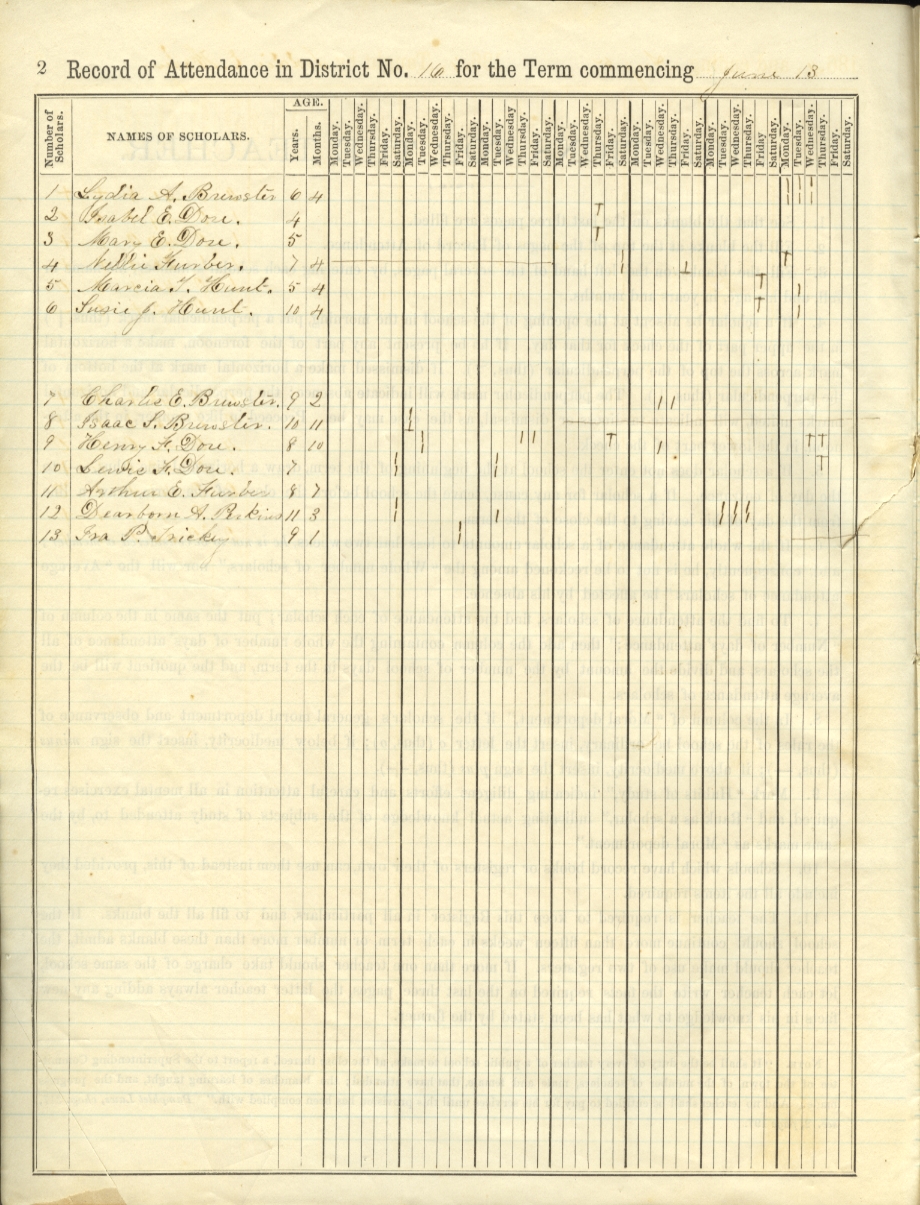 2 Record of Attendance in District No. 16 for the Term commencing June 13
Number of Scholars. NAMES OF SCHOLARS. AGE. Years. Months. Monday. Tuesday. Wednesday. Thursday. Friday. Saturday. Monday. Tuesday. Wednesday. Thursday. Friday. Saturday. Monday. Tuesday. Wednesday. Thursday. Friday. Saturday. Monday. Tuesday. Wednesday. Thursday Friday. Saturday. Monday. Tuesday. Wednesday. Thursday. Friday. Saturday. Monday. Tuesday. Wednesday. Thursday. Friday Saturday. Monday. Tuesday. Wednesday. Thursday. Friday. Saturday.
1 Lydia A. Brewster 6 4
2 Isabel E. Dore. 4
3 Mary E. Dore. 5
4 Nellie Furber. 7 4
5 Marcia T. Hunt. 5 4
6 Susie J. Hunt. 10 4
7 Charlie E. Brewster. 9 2
8 Isaac S. Brewster. 10 11
9 Henry F. Dore. 8 10
10 Lewis F. Dore. 7
11 Arthur E. Furber 8 7
12 Dearborn A. Perkins 11 3
13 Ira P. Trickey 9 1